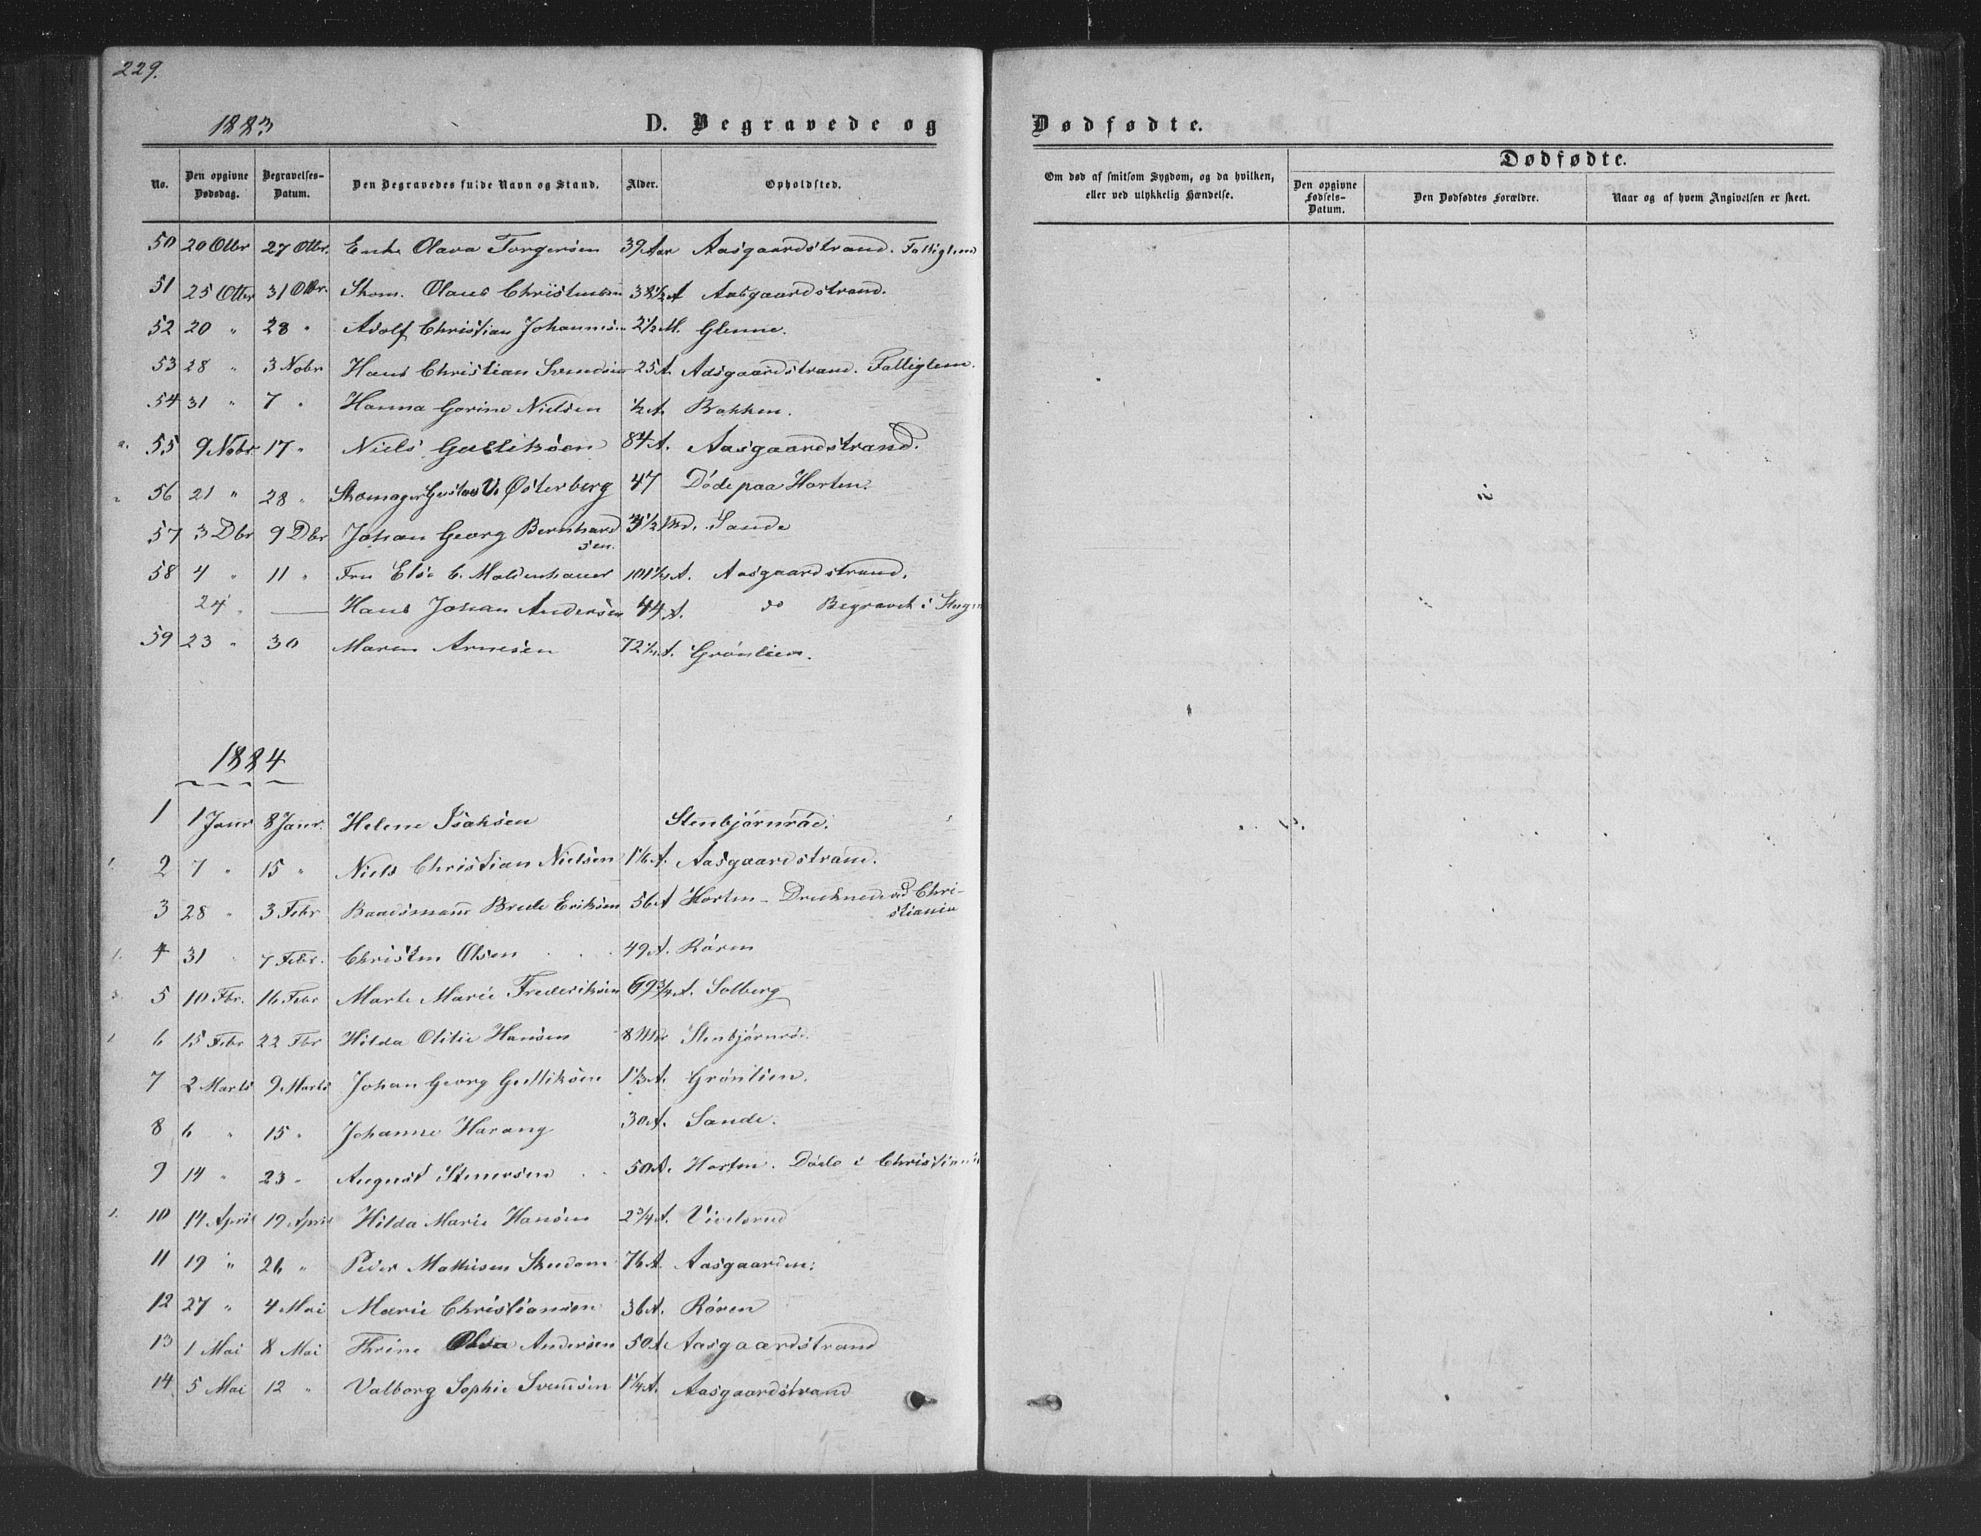 229.
1883
D. Begravede og
Dødfødte.
No. Den opgivne Dødsdag. Begravelses-Datum. Den Begravedes fulde Navn og Stand. Alder. Opholdsted.
Om død af smitsom Sygdom, og da hvilken, eller ved ulykkelig Hændelse.
Dødfødte.
Den opgivne Fødsels-Datum. Den Dødfødtes Forældre. Naar og af hvem Angivelsen er skeet.
50 20 Otbr 27 Otbr. Enke Olava Torgersen 39 Aar Aasgaardstrand. Fattiglem
51 25 Otbr 31 Otbr. Skom. Olaus Christensen 38 1/2 A Aasgaardstrand.
52 20 " 28 " Adolf Christian Johannsen 2 1/2 M. Glenne.
53 28 " 3 Nobr Hans Christian Svendsen 25 A. Aasgaardstrand. Fattiglem.
54 31 " 7 " Hanna Gorine Nielsen 1/2 A Bakken.
55 9 Nobr 17 " Niels Gulliksen 84 A. Aasgaardstrand.
56 21 " 28 " Skomager Gustav V. Østerberg 47 Døde paa Horten.
57 3 Dbr 9 Dbr Johan Georg Bernhardsen. 3 1/2 Md. Sande
58 4 " 11 " Fru Else C. Moldenhauer 101 1/4 A. Aasgaardstrand.
24 " — Hans Johan Andersen 44 A. do Begravet i
59 23 " 30 Maren Arnesen 72 1/4 A. Grønlien.
1884
1 1 Janr 8 Janr. Helene Isaksen Stenbjørnrød.
2 7 " 15 " Niels Christian Nielsen 1 1/6 A. Aasgaardstrand.
3 28 " 3 Febr Baadsmann Brede Eriksen 56 A Horten - Druknede ved Christiania
4 31 " 7 Febr. Christen Olsen 49 A. Røren
5 10 Fbr. 16 Febr Marte Marie Frederiksen 69 3/4 A. Solberg
6 15 Febr 22 Fbr Hilda Otilie Hansen 8 Mdr Stenbjørnrød.
7 2 Marts 9 Marts Johan Georg Gulliksen 1 1/3 A. Grønlien.
8 6 " 15 " Johanne Harang 30 A. Sande.
9 14 " 23 " August Stenersen 50 A. Horten. Døde i Christiania
10 14 April 19 April Hilda Marie Hansen 2 3/4 A. Vivelsrud
11 19 " 26 " Peder Mathisen 76 A Aasgaarden.
12 27 " 4 Mai Marie Christiansen 36 A. Røren
13 1 Mai 8 Mai Thrine Olsa Andersen 50 A Aasgaardstrand
14 5 Mai 12 " Valborg Sophie Svensen 1 1/4 A. Aasgaardstrand